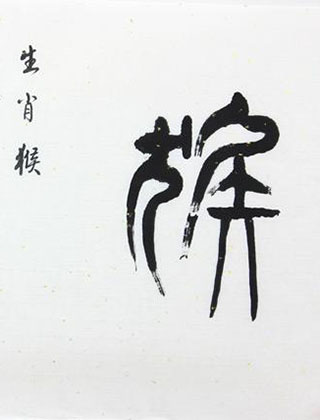 猴
生肖猴